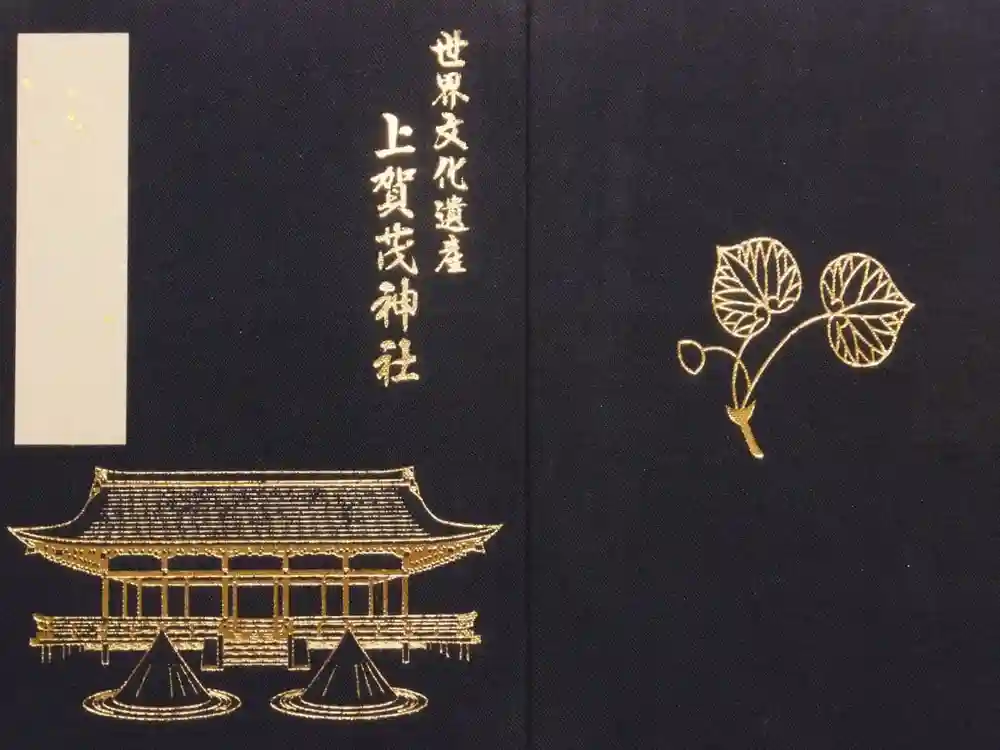 世界文化遺産
上賀茂神社